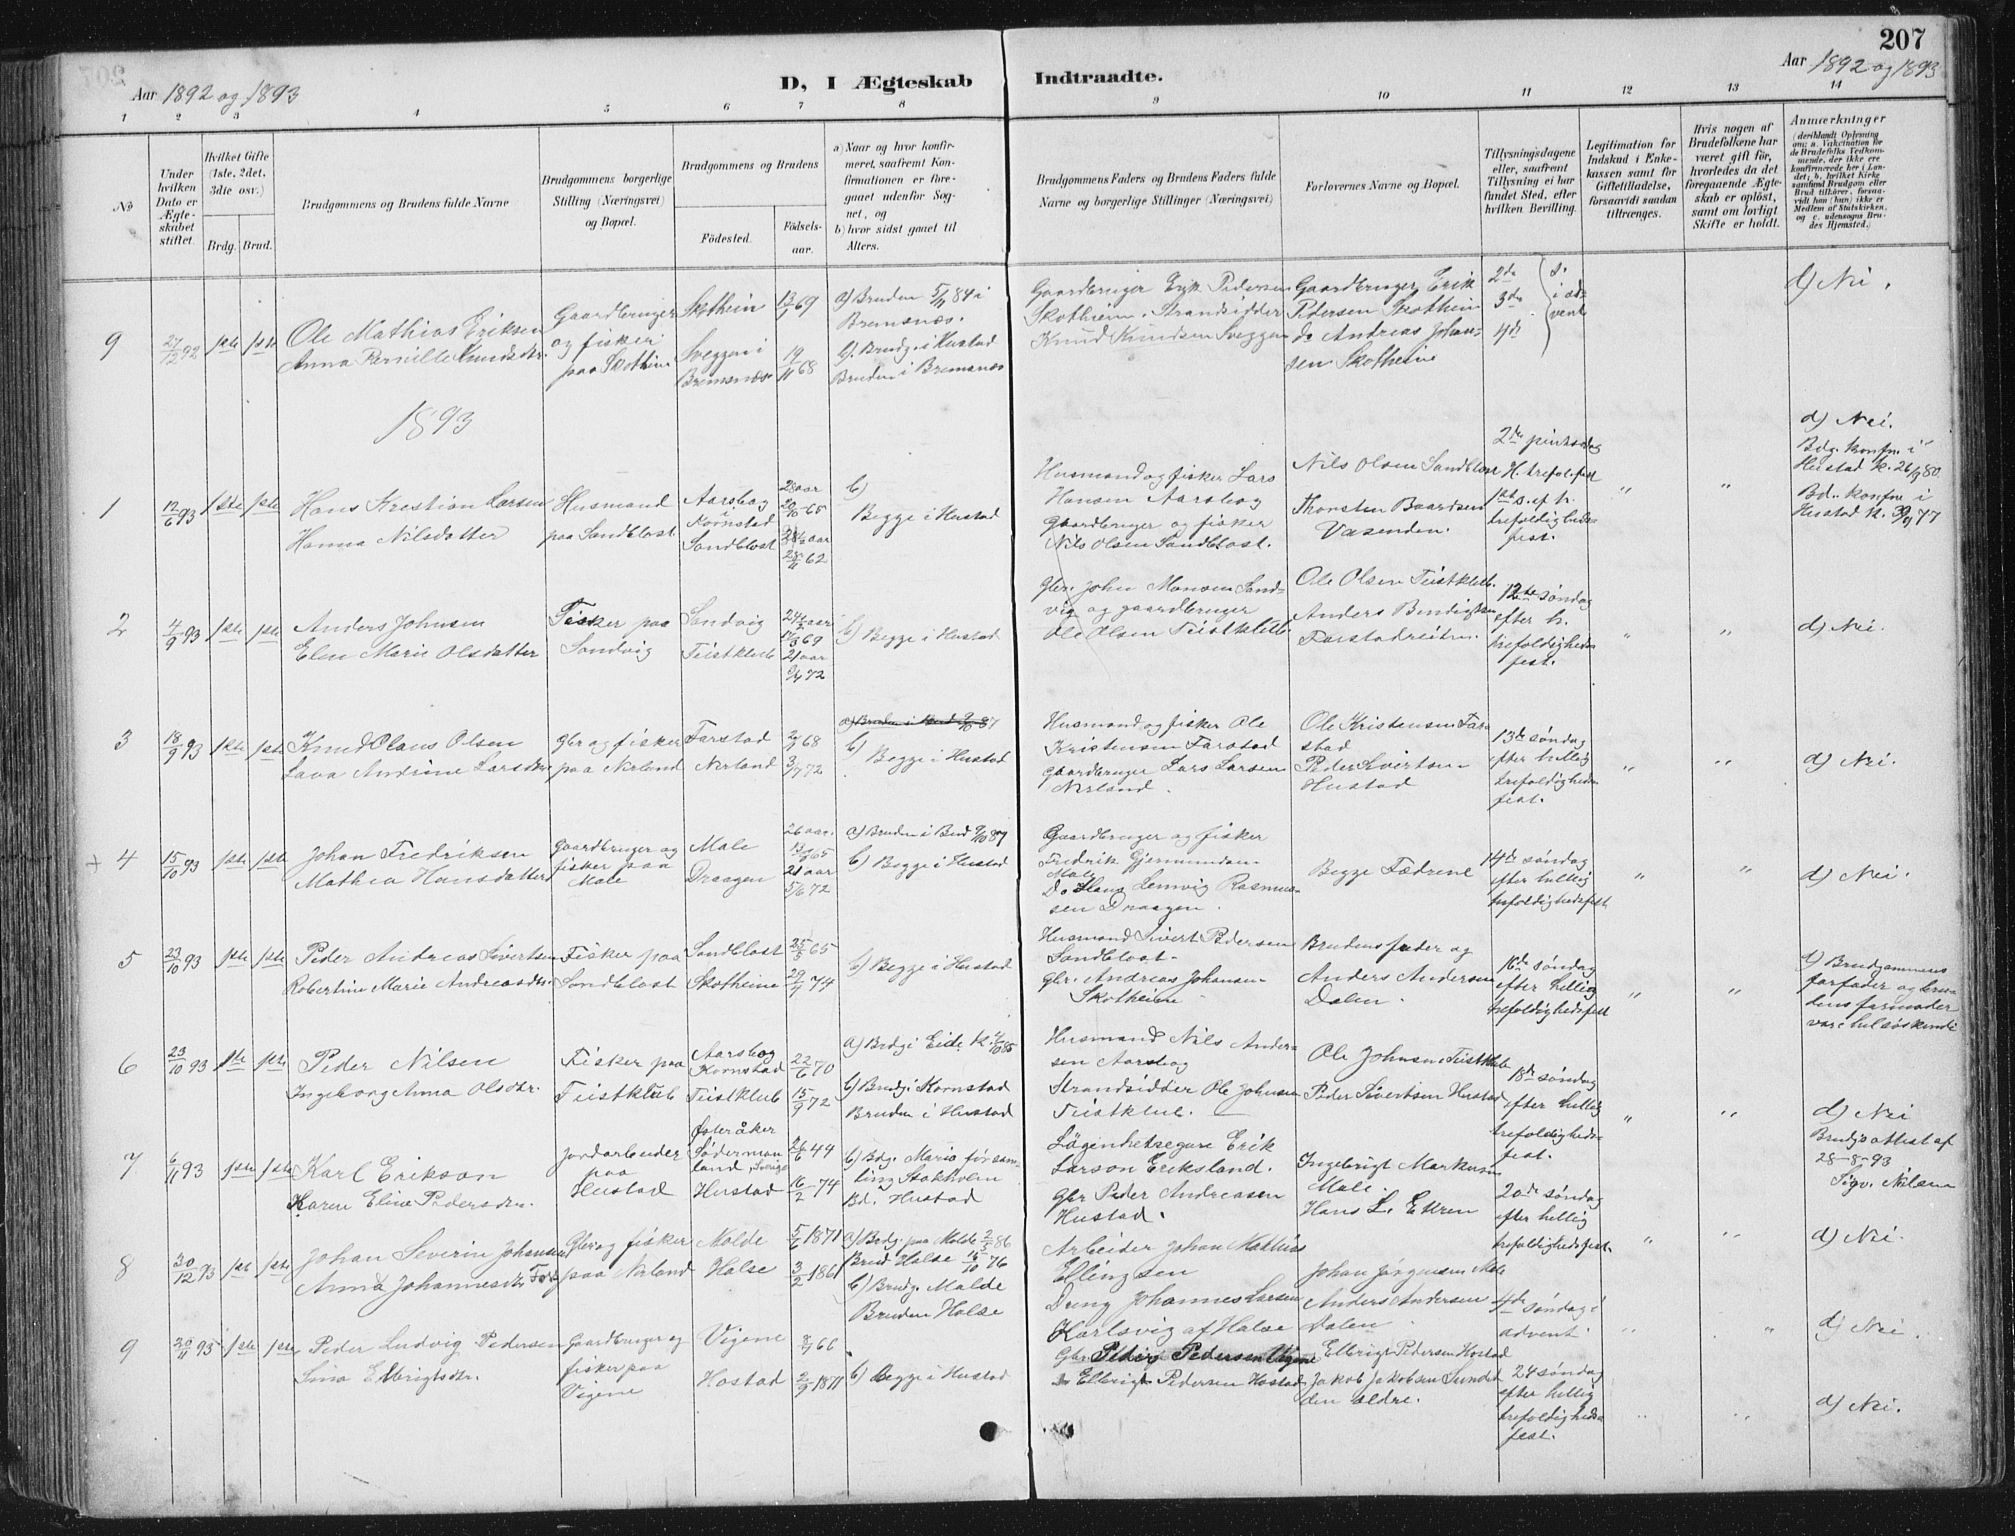 207
Aar 1892 og 1893
D, I Ægteskab Indtraadte.
Aar 1892 og 1893
1 2 3 4 5 6 7 8 9 10 11 12 13 14
No
Under hvilken Dato er Ægteskabet stiftet.
Hvilket Gifte (1ste, 2det, 3dte osv.)
Brdg. Brud.
Brudgommens og Brudens fulde Navne
Brudgommens borgerlige Stilling (Næringsvei) og Bopæl.
Brudgommens og Brudens
Födested.
Födsels-aar.
a) Naar og hvor konfirmeret, saafremt Konfirmationen er foregaaet udenfor Sognet, og
b) hvor sidst gaaet til Alters.
Brudgommens Faders og Brudens Faders fulde Navne og borgerlige Stillinger (Næringsvei)
Forlovernes Navne og Bopæl.
Tillysningsdagene eller, saafremt Tillysning ei har fundet Sted, efter hvilken Bevilling.
Legitimation for Indskud i Enkekassen samt for Giftetilladelse, forsaavidt saadan tiltrænges.
Hvis nogen af Brudefolkene har været gift för, hvorledes da det foregaaende Ægteskab er oplöst, samt om lovligt Skifte er holdt.
Anmærkninger
9 27/12 92 1ste 1ste
Ole Mathias Eriksen
Anna Pernille Knudsdtr.
Gaardbruger
og fisker
paa Skotheim
Skotheim
Sveggen i
Bremsnæs
19/11 68
a) Bruden 5/11 84 i
Bremsnæs.
b) Brudg. i Hustad
Bruden i Bremsnæs
Gaardbruger Erik Pedersen
Skotheim. Strandsidder
Knud Knudsen Sveggen
Gaardbruger Erik
Pedersen Skotheim
do Andreas Johan-
sen Skotheim
2de
3de
4de
s.
i ad-
vent
d) Nei.
1893
1 12/6 93 1ste 1ste
Hans Kristian Larsen
Hanna Nilsdatter
Husmand
paa Sandblost
Aarsbog
i
Kornstad
Sandblost
28 aar
20/10 65
28/11 62
b)
Begge i Hustad
Husmand og fisker Lars
Hansen Aarsbog
Gaardbruger og fisker
Nils Olsen Sandblost.
Nils Olsen Sandblost
Thorsten Baardsen
Vasenden.
2den pintsedag
H. trefol.fest
1ste s. ef h.
trefoldigheds-
fest.
" "
d) Nei.
Bdg. konfr. i
Hustad k. 26/9 80
Bd. konfr. i
Hustad k. 30/9 77
2 4/9 93 1ste 1ste
Anders Johnsen
Elen Marie Olsdatter
Fisker paa
Sandvig
Sandvig
Teistklub
21 aar
3/4 72
b) Begge i Hustad
Gbr. John Monsen Sand-
vig og gaardbruger
Ole Olsen Teistklub.
Ole Olsen Teistklub.
Anders Bendigtsen
Farstadreiten.
12te søndag
efter h.
trefoldigheds
fest.
" "
d) Nei.
3 18/9 93 1ste 1ste
Knud Olaus Olsen
Lava Andrine Larsdtr
Gbr og fisker
paa Nerland
Farstad
Nerland
3/7 72
b)
Begge i Hustad
Husmand og fisker Ole
Kristensen Farstad
Gaardbruger Lars Larsen
Nerland.
Ole Kristensen Far-
stad
Peder Sivertsen
Hustad
13de søndag
efter hellig
trefoldigheds
fest.
" "
d) Nei.
+ 4 15/10 93 1ste 1ste
Johan Fredriksen
Mathea Hansdatter
Gaardbruger og
fisker paa
Male
Male
Draagen
26 aar.
21 aar
5/6 72
a) Bruden i Bud 9/10 87
b) Begge i Hustad
Gaardbruger og fisker
Fredrik Gjermundsen
Male
Do Hans Lemvig Rasmus-
sen Draagen.
Begge Fædrene
14de søndag
efter hellig
trefoldighedsfest
" "
d) Nei.
5 23/10 93 1ste 1ste
Peder Andreas Sivertsen
Robertine Marie Andreasdtr.
Fisker paa
Sandblost
Sandblost
Skotheim
25/5 65
29/9 74
b) Begge i Hustad
Husmand Sivert Pedersen
Sandblost
Gbr. Andreas Johansen
Skotheim
Brudens fader og
Anders Andersen
Dalen.
16de søndag
efter hellig
trefoldighedsfest
" "
d) Brudgommens
farfader og bru-
dens farmoder
vare helsøskende
6 23/10 93 1ste 1ste
Peder Nilsen
Ingeborg Anna Olsdtr.
Fisker paa
Teistklub
Aarsbog
Kornstad
Teistklub
22/6 70
15/9 72
a) Brdg i Eide k. 4/10 85
b) Brudg i Kornstad
Bruden i Hustad
Husmand Nils Ander-
sen Aarsbog
Strandsidder Ole Johnsen
Teistklub.
Ole Johnsen Teistklub
Peder Sivertsen Hustad
18de søndag
efter hellig
trefoldigheds-
fest.
" "
d) Nei
7 6/11 93 1ste 1ste
Karl Erikson
Karen Eline Pedersdtr.
Jordarbeider
paa
Hustad
Österåker
Söderman
land, Sverige
Hustad
26/6 49
16/2 74
b) Bdg. Maria försam-
ling Stokholm
Bd. Hustad
Lägenhetsegare Erik
Larson Eriksland.
Gbr Peder Andreasen
Hustad.
Ingebrigt Markussen
Male.
Hans L. Ekren
20de søndag
efter hellig
trefoldighedsfest.
" "
Brudgs attest af
28-8-93
Sigv. Nilsen
d) Nei.
8 30/12 93 1ste 1ste
Johan Severin Johansen
Anna Johannesdtr
Gbr og fisker
paa Nerland
Molde
Halse
5/6 1871
3/2 1861
a) Brdg. paa Molde 2/5 86
Brud Halse 15/10 76
b) Brudg. Molde
Bruden Halse
Arbeider Johan Mathias
Ellingsen
Dreng Johannes Larsen
Karlsvig af Halse
Johan Jørgensen Male
Anders Andersen
Dalen
4de søndag i
advent
" "
d) Nei.
9 20/11 93 1ste 1ste
Peder Ludvig Pedersen
Sina Elbrigtsdtr.
Gaardbruger og
fisker paa
Vigene
Vigene
Hostad
8/7 66
2/9 1871
b) Begge i Hustad
Gbr Peder Pedersen Vigene
do Elbrigt Pedersen Hostad
Elbrigt Pedersen Hostad
Jakob Jakobsen Sunde
den ældre.
24 søndag
efter hellig
trefoldigheds
fest.
" "
d) Nei.